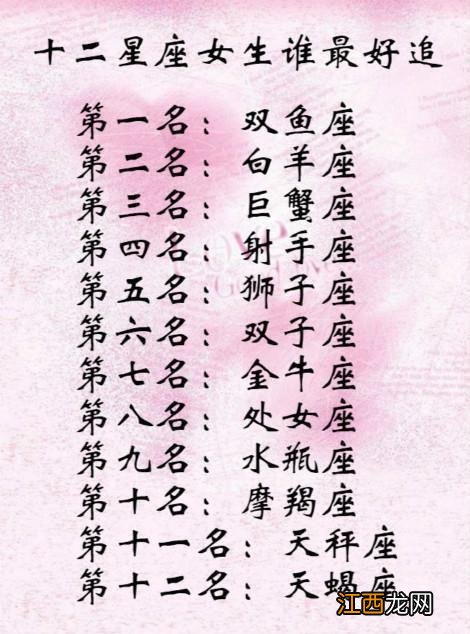 十二星座女生谁最好追
第一名：双鱼座
第二名：白羊座
第三名：巨蟹座
第四名：射手座
第五名：狮子座
第六名：双子座
第七名：金牛座
第八名：处女座
第九名：水瓶座
第十名：摩羯座
第十一名：天秤座
第十二名：天蝎座
江西龙网